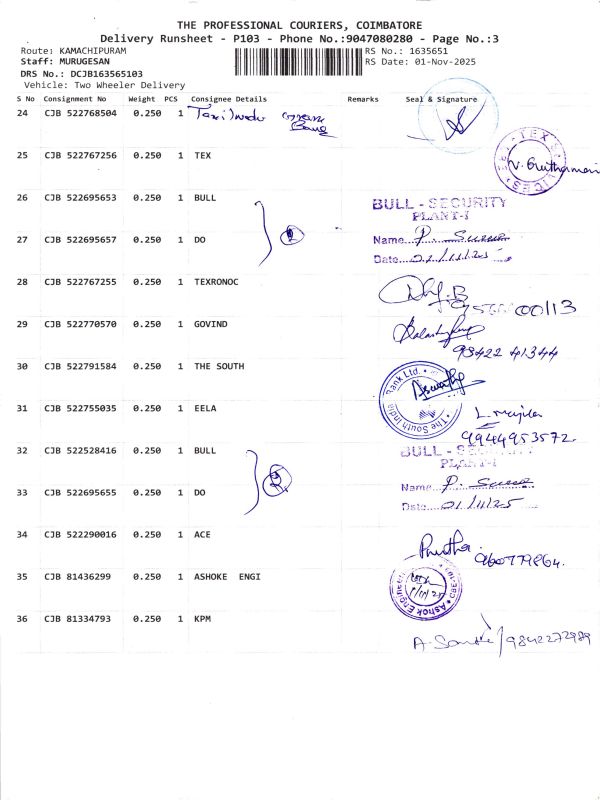 THE PROFESSIONAL COURIERS, COIMBATORE
Delivery Runsheet - P103 - Phone No.:9047080280 - Page No.:3
Route: KAMACHIPURAM RS No.: 1635651
Staff: MURUGESAN RS Date: 01-Nov-2025
DRS No.: DCJB163565103
Vehicle: Two Wheeler Delivery
S No Consignment No Weight PCS Consignee Details Remarks Seal & Signature
24 CJB 522768504 0.250 1 Tamilnadu
25 CJB 522767256 0.250 1 TEX
26 CJB 522695653 0.250 1 BULL
BULL - SECURITY
PLANT-I
27 CJB 522695657 0.250 1 DO 2
Name... P.
Date... 01/11/25
28 CJB 522767255 0.250 1 TEXRONOC
29 CJB 522770570 0.250 1 GOVIND
98422 41344
30 CJB 522791584 0.250 1 THE SOUTH
The South India Bank Ltd.
31 CJB 522755035 0.250 1 EELA
9944953572
32 CJB 522528416 0.250 1 BULL
BULL - SECURITY
PLANT-I
33 CJB 522695655 0.250 1 DO 2
Name... P.
Date... 01/11/25
34 CJB 522290016 0.250 1 ACE
35 CJB 81436299 0.250 1 ASHOKE ENGI
36 CJB 81334793 0.250 1 KPM
9842272989